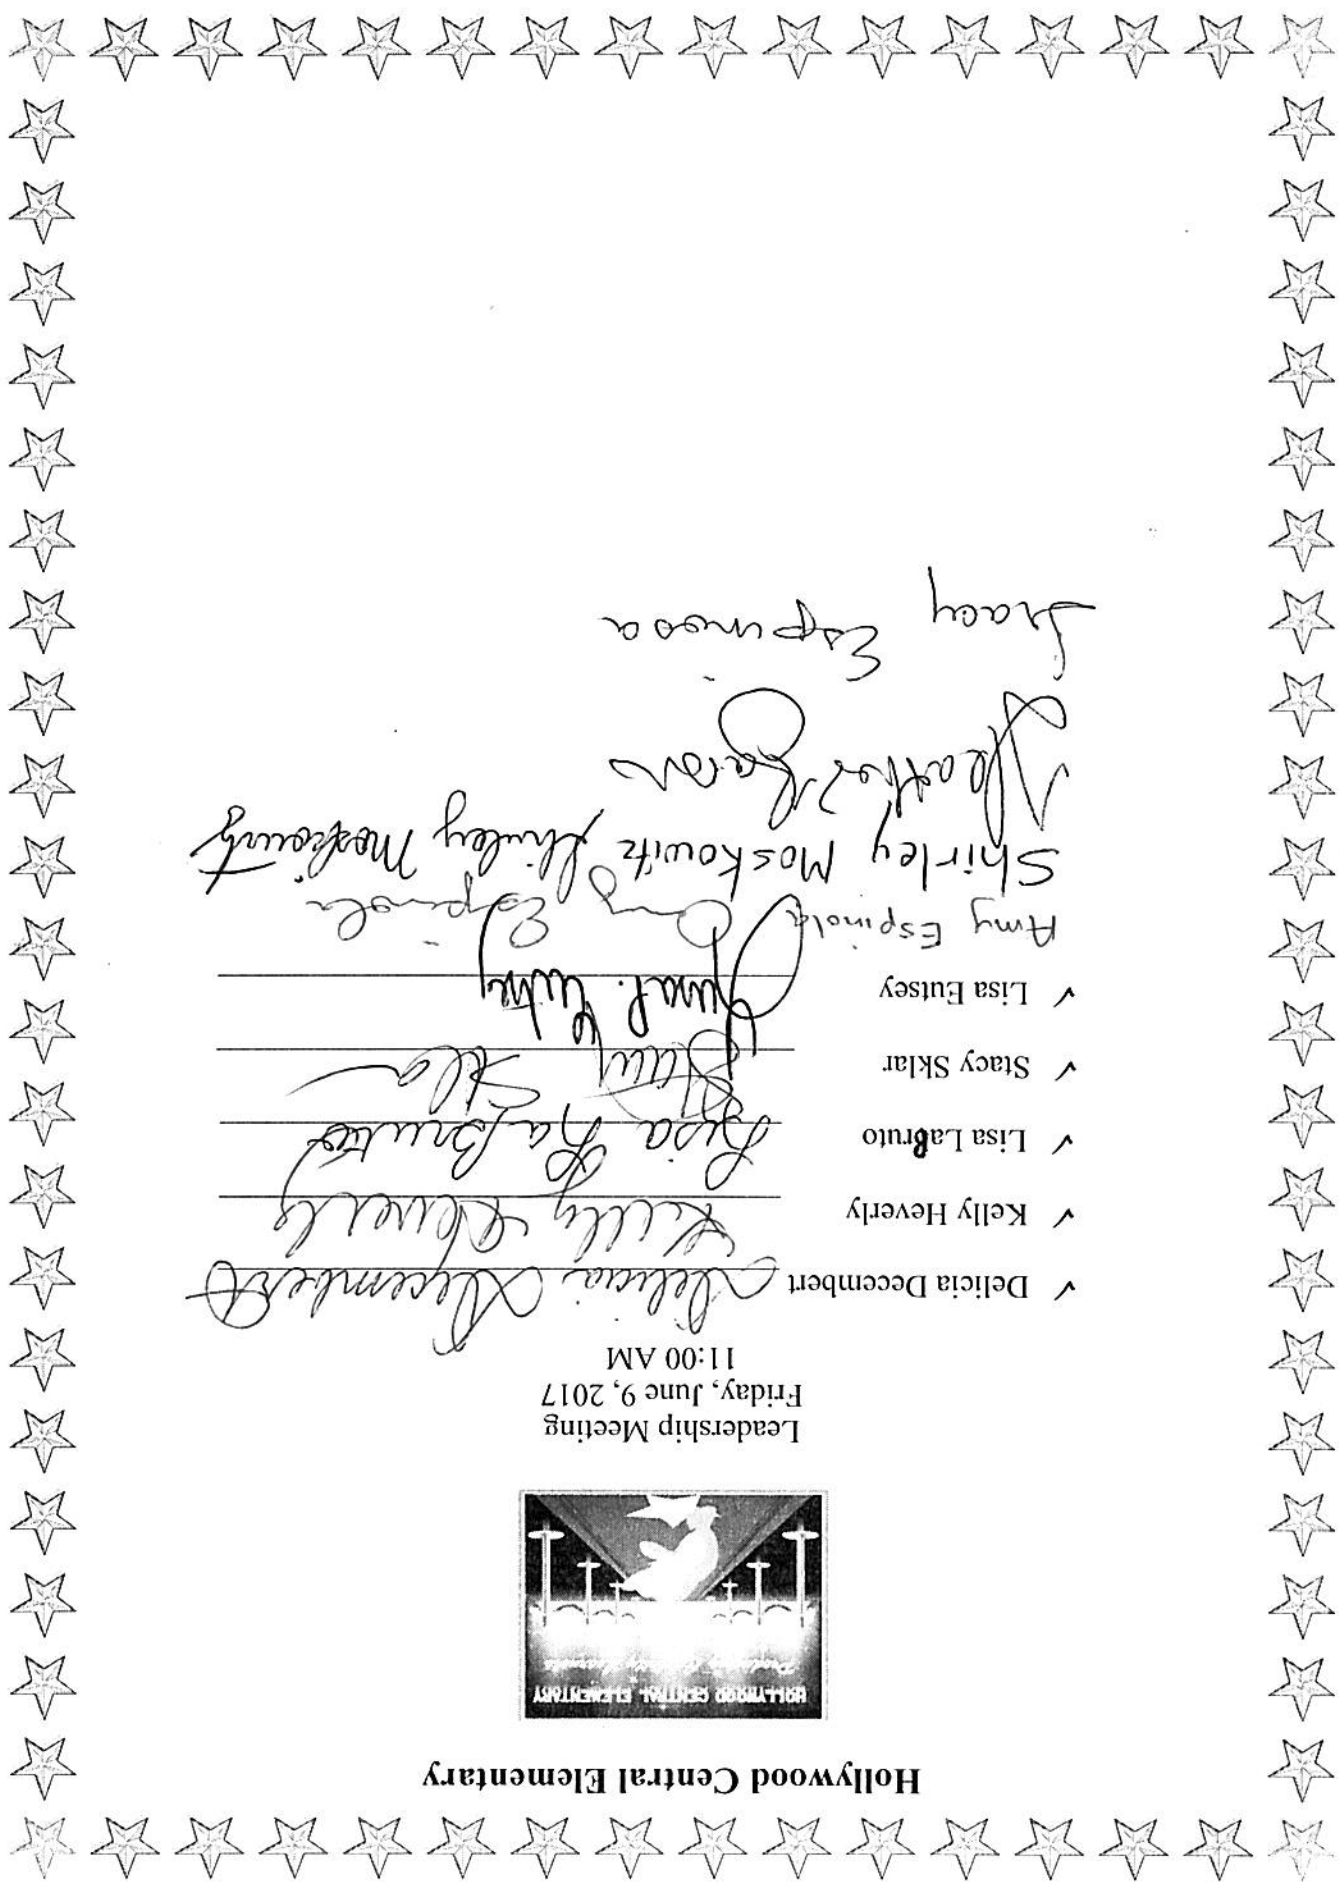 Hollywood Central Elementary
HOLLYWOOD CENTRAL ELEMENTARY
Leadership Meeting
Friday, June 9, 2017
11:00 AM
✓ Delicia Decembert Delicia Decembert
✓ Kelly Heverly Kelly Heverly
✓ Lisa LaBruto Lisa LaBruto
✓ Stacy Sklar Stacy Sklar
✓ Lisa Eutsey Lisa P. Eutsey
Amy Espinola Amy Espinola
Shirley Moskowitz Shirley Moskowitz
Heather
Tracy Espinosa